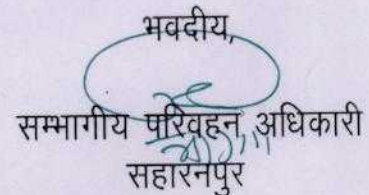 भवदीय,
सम्भागीय परिवहन अधिकारी
सहारनपुर